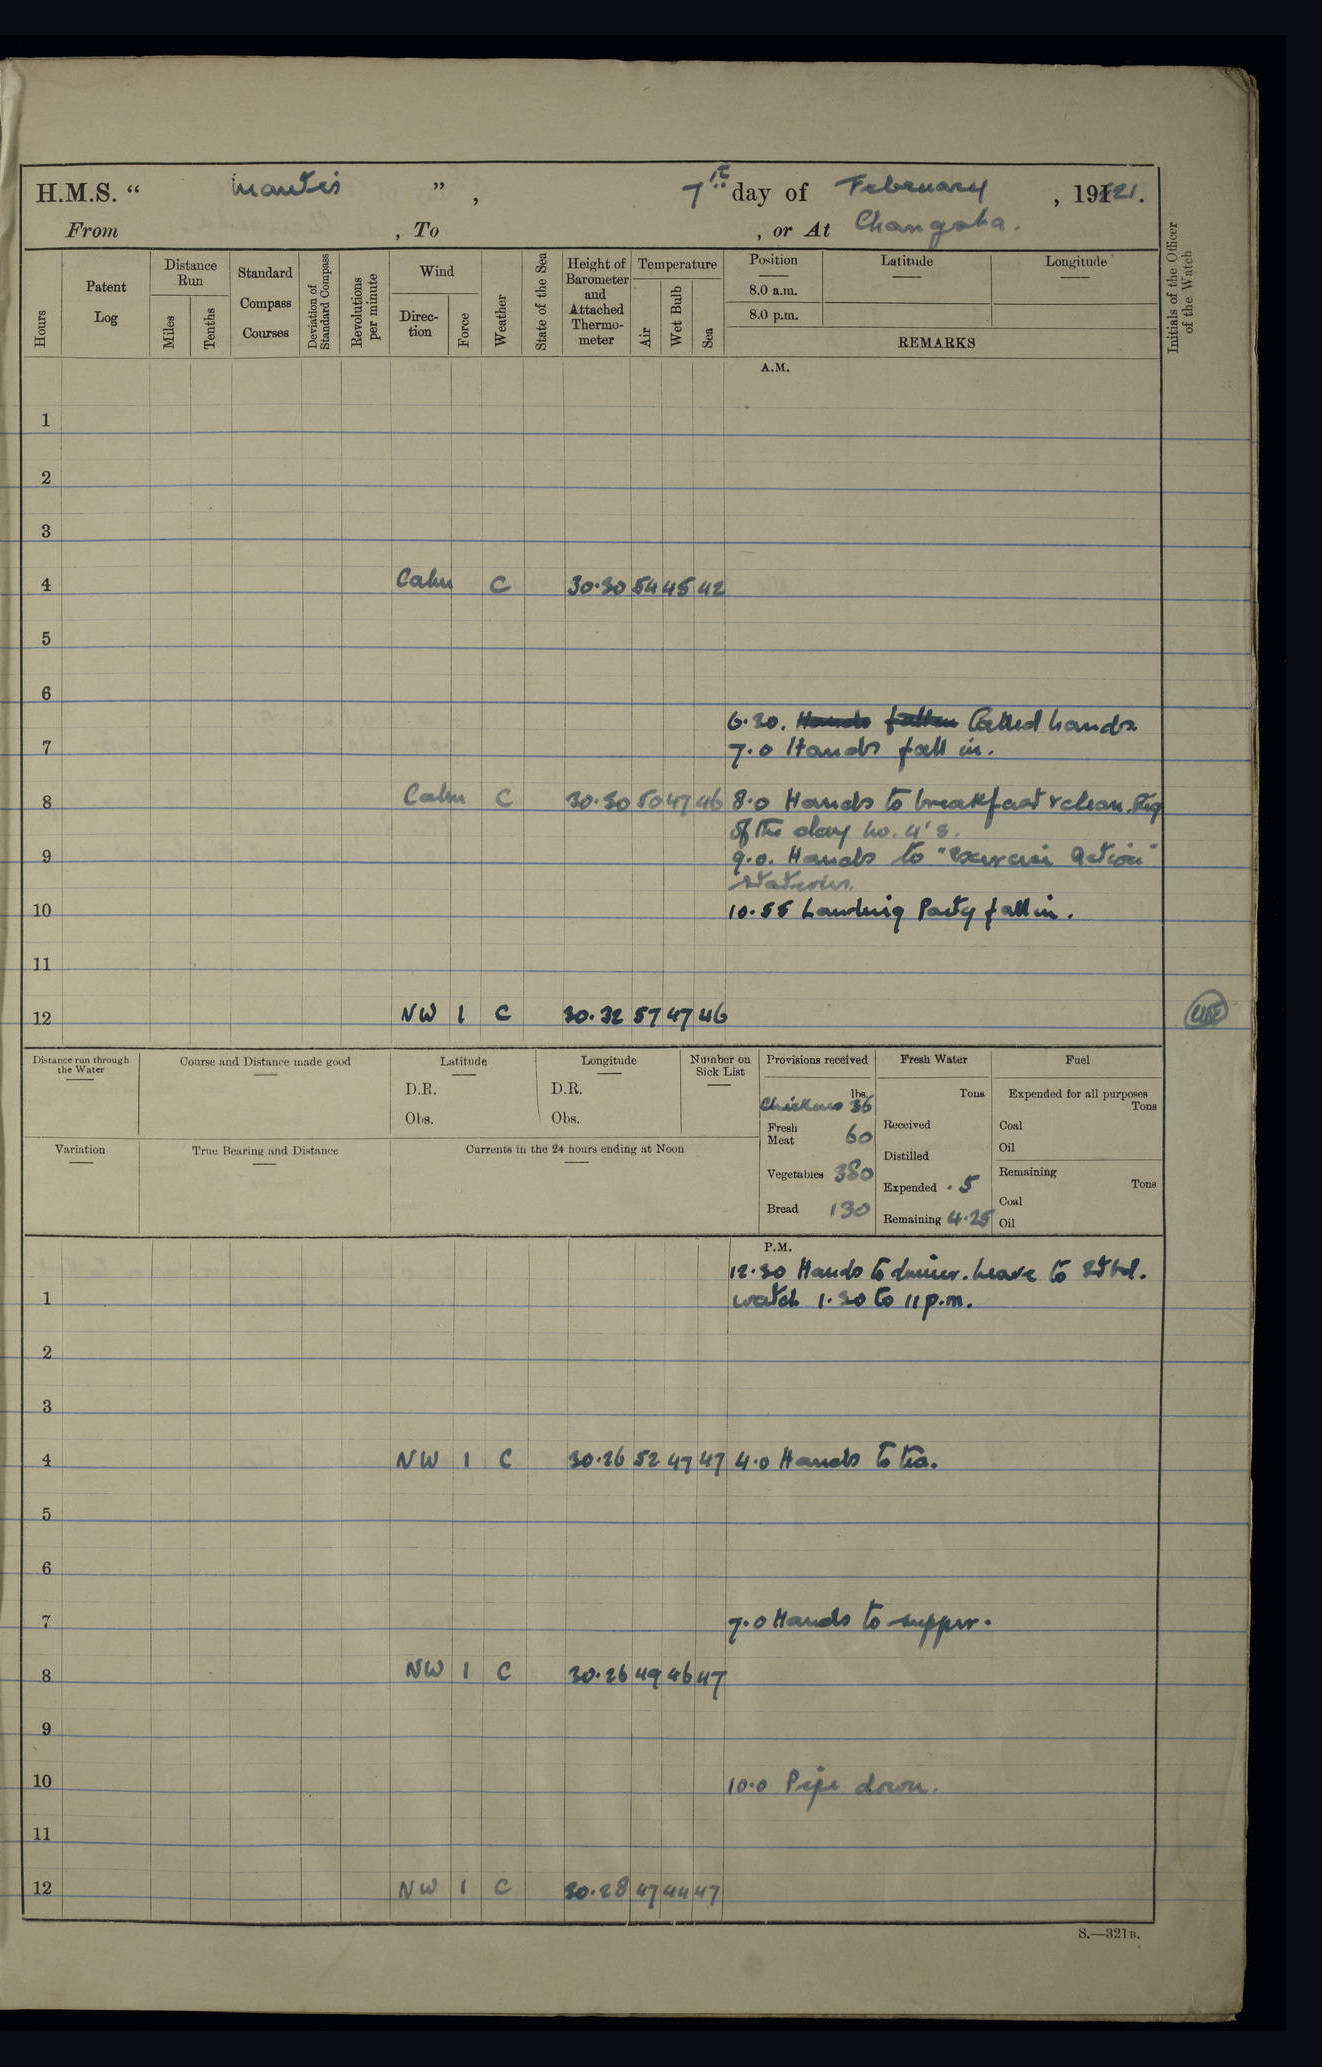 H.M.S. “ Mantis ” , 7th day of February , 1921.
From , To , or At Changsha.
Hours
Patent Log
Distance Run
Miles
Tenths
Standard Compass Courses
Deviation of Standard Compass
Revolutions per minute
Wind
Direction
Force
Weather
State of the Sea
Height of Barometer and Attached Thermometer
Temperature
Air
Wet Bulb
Sea
Position
8.0 a.m.
8.0 p.m.
Latitude
Longitude
REMARKS
Initials of the Officer of the Watch
A.M.
1
2
3
4 Calm C 30.30 54 45 42
5
6
6.30. Hands fallen Called hands
7 7.0 Hands fall in.
8 Calm C 30.30 50 47 46 8.0 Hands to breakfast & clean. Rig
of the day No. 4's.
9 9.0. Hands to "Exercise Action"
stations.
10 10.55 Landing Party fall in.
11
12 NW 1 C 30.32 57 47 46
Distance run through the Water
Course and Distance made good
Latitude
D.R.
Obs.
Longitude
D.R.
Obs.
Number on Sick List
Provisions received
lbs.
Chickens 36
Fresh Meat 60
Vegetables 380
Bread 130
Fresh Water
Tons
Received
Distilled
Expended .5
Remaining 4.25
Fuel
Expended for all purposes
Tons
Coal
Oil
Remaining
Tons
Coal
Oil
Variation
True Bearing and Distance
Currents in the 24 hours ending at Noon
P.M.
12.30 Hands to dinner. Leave to Stbd.
1 watch 1.30 to 11 p.m.
2
3
4 NW 1 C 30.26 52 47 47 4.0 Hands to tea.
5
6
7 7.0 Hands to supper.
8 NW 1 C 30.26 49 46 47
9
10 10.0 Pipe down.
11
12 NW 1 C 30.28 47 44 47
S.—321B.